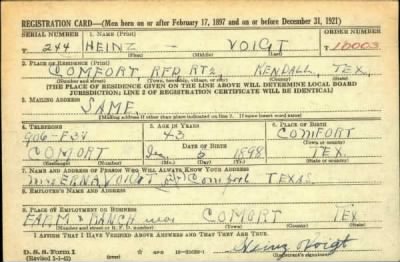 REGISTRATION CARD—(Men born on or after February 17, 1897 and on or before December 31, 1921)
SERIAL NUMBER 1. NAME (Print) ORDER NUMBER
T 244 HEINZ - VOIGT 10003
(First) (Middle) (Last)
2. PLACE OF RESIDENCE (Print)
COMFORT, RFD RT2, KENDALL, TEX.
(Number and street) (Town, township, village, or city) (County) (State)
[THE PLACE OF RESIDENCE GIVEN ON THE LINE ABOVE WILL DETERMINE LOCAL BOARD
JURISDICTION; LINE 2 OF REGISTRATION CERTIFICATE WILL BE IDENTICAL]
3. MAILING ADDRESS
SAME
[Mailing address if other than place indicated on line 2. If same insert word same]
4. TELEPHONE 5. AGE IN YEARS 6. PLACE OF BIRTH
43 COMFORT
DATE OF BIRTH (Town or county)
COMORT 5 1898 TEX
(Exchange) (Number) (Mo.) (Day) (Yr.) (State or country)
7. NAME AND ADDRESS OF PERSON WHO WILL ALWAYS KNOW YOUR ADDRESS
MRS ERNA VOIGT Comfort TEXAS
8. EMPLOYER'S NAME AND ADDRESS
9. PLACE OF EMPLOYMENT OR BUSINESS
FARM & RANCH near COMORT TEX
(Number and street or R. F. D. number) (Town) (County) (State)
I AFFIRM THAT I HAVE VERIFIED ABOVE ANSWERS AND THAT THEY ARE TRUE.
D. S. S. Form 1
(Revised 1-1-42) (over)
Heinz Voigt
(Registrant's signature)